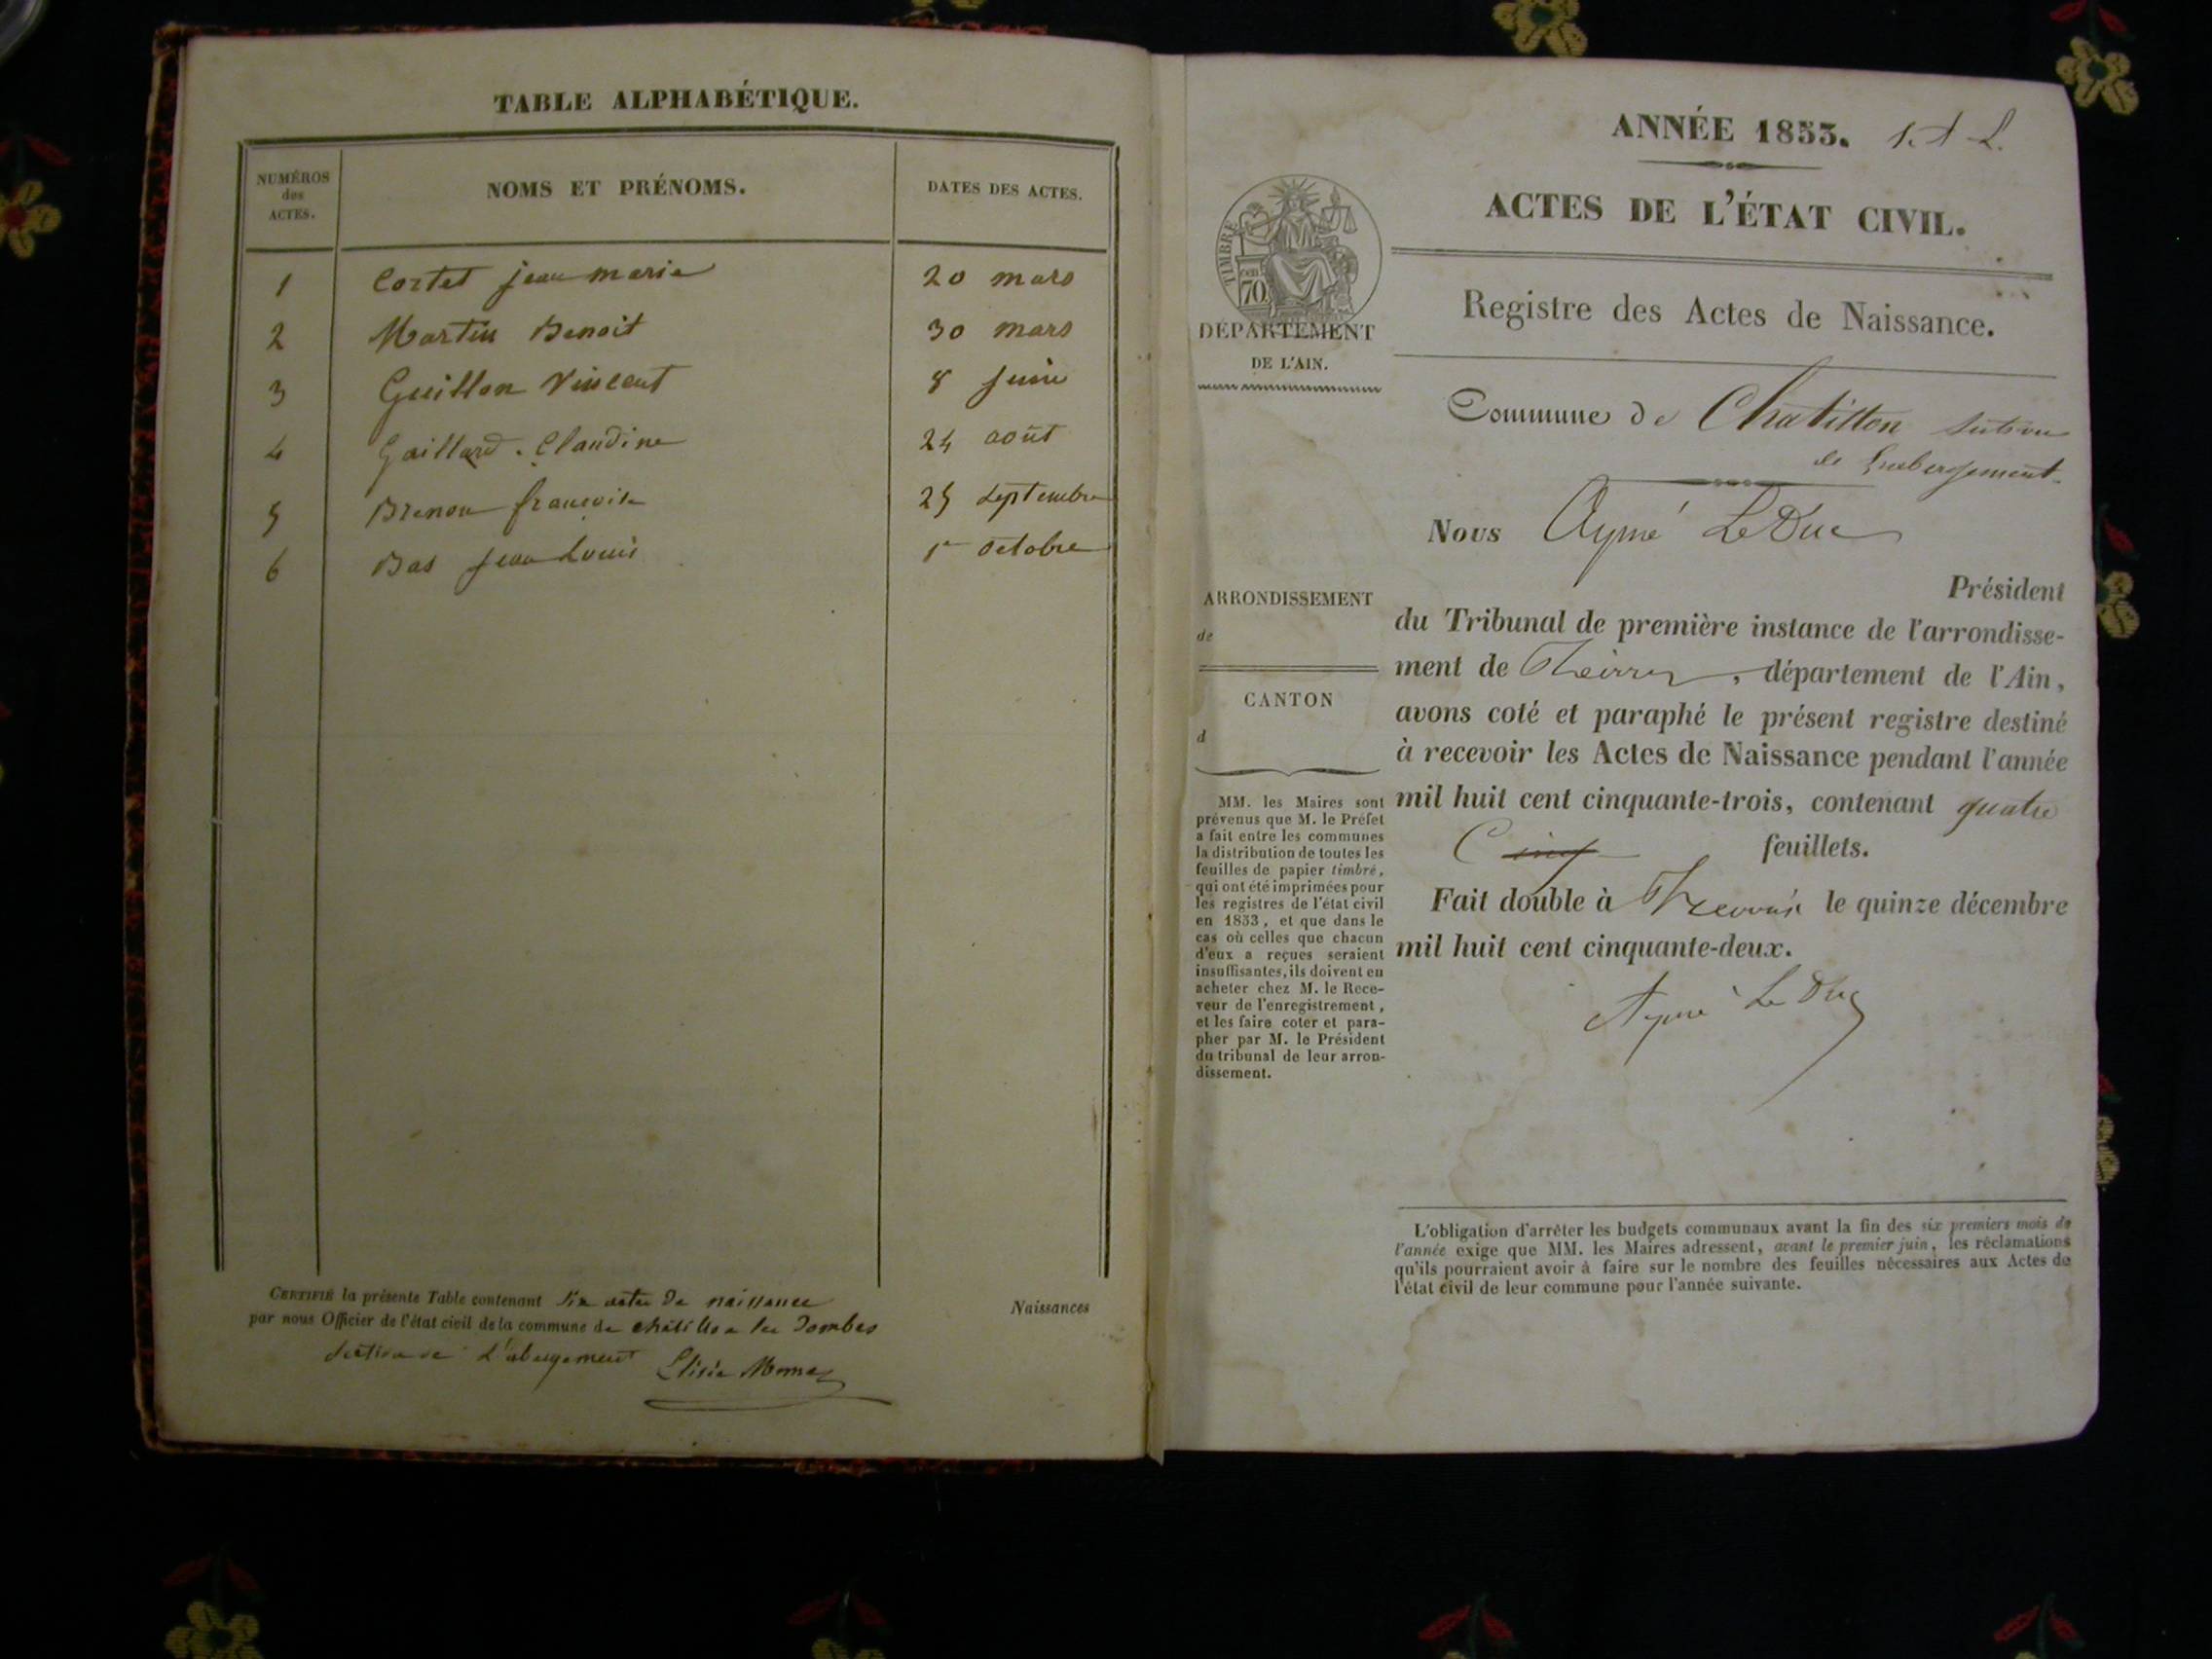 TABLE ALPHABÉTIQUE.
NUMÉROS des ACTES. NOMS ET PRÉNOMS. DATES DES ACTES.
1 Cortet jean marie 20 mars
2 Martin Benoit 30 mars
3 Guillon Vincent 8 juin
4 Gaillard Claudine 24 août
5 Brenon françoise 25 septembre
6 Bas jean Louis 1er octobre
CERTIFIÉ la présente Table contenant six actes de naissance
par nous Officier de l'état civil de la commune de chatillon les Dombes
section de L'abergement
Naissances
ANNÉE 1853. 1.
ACTES DE L'ÉTAT CIVIL.
TIMBRE
70
DÉPARTEMENT
DE L'AIN.
Registre des Actes de Naissance.
Commune de Chatillon section
de Labergement.
Nous Aymé LeDuc
Président
du Tribunal de première instance de l'arrondisse-
ment de , département de l'Ain,
avons coté et paraphé le présent registre destiné
à recevoir les Actes de Naissance pendant l'année
mil huit cent cinquante-trois, contenant quatre
Cinq feuillets.
Fait double à Trevoux le quinze décembre
mil huit cent cinquante-deux.
Aymé Le Duc
ARRONDISSEMENT
de
CANTON
d
MM. les Maires sont
prévenus que M. le Préfet
a fait entre les communes
la distribution de toutes les
feuilles de papier timbré,
qui ont été imprimées pour
les registres de l'état civil
en 1853, et que dans le
cas où celles que chacun
d'eux a reçues seraient
insuffisantes, ils doivent en
acheter chez M. le Rece-
veur de l'enregistrement,
et les faire coter et para-
pher par M. le Président
du tribunal de leur arron-
dissement.
L'obligation d'arrêter les budgets communaux avant la fin des six premiers mois de
l'année exige que MM. les Maires adressent, avant le premier juin, les réclamations
qu'ils pourraient avoir à faire sur le nombre des feuilles nécessaires aux Actes de
l'état civil de leur commune pour l'année suivante.